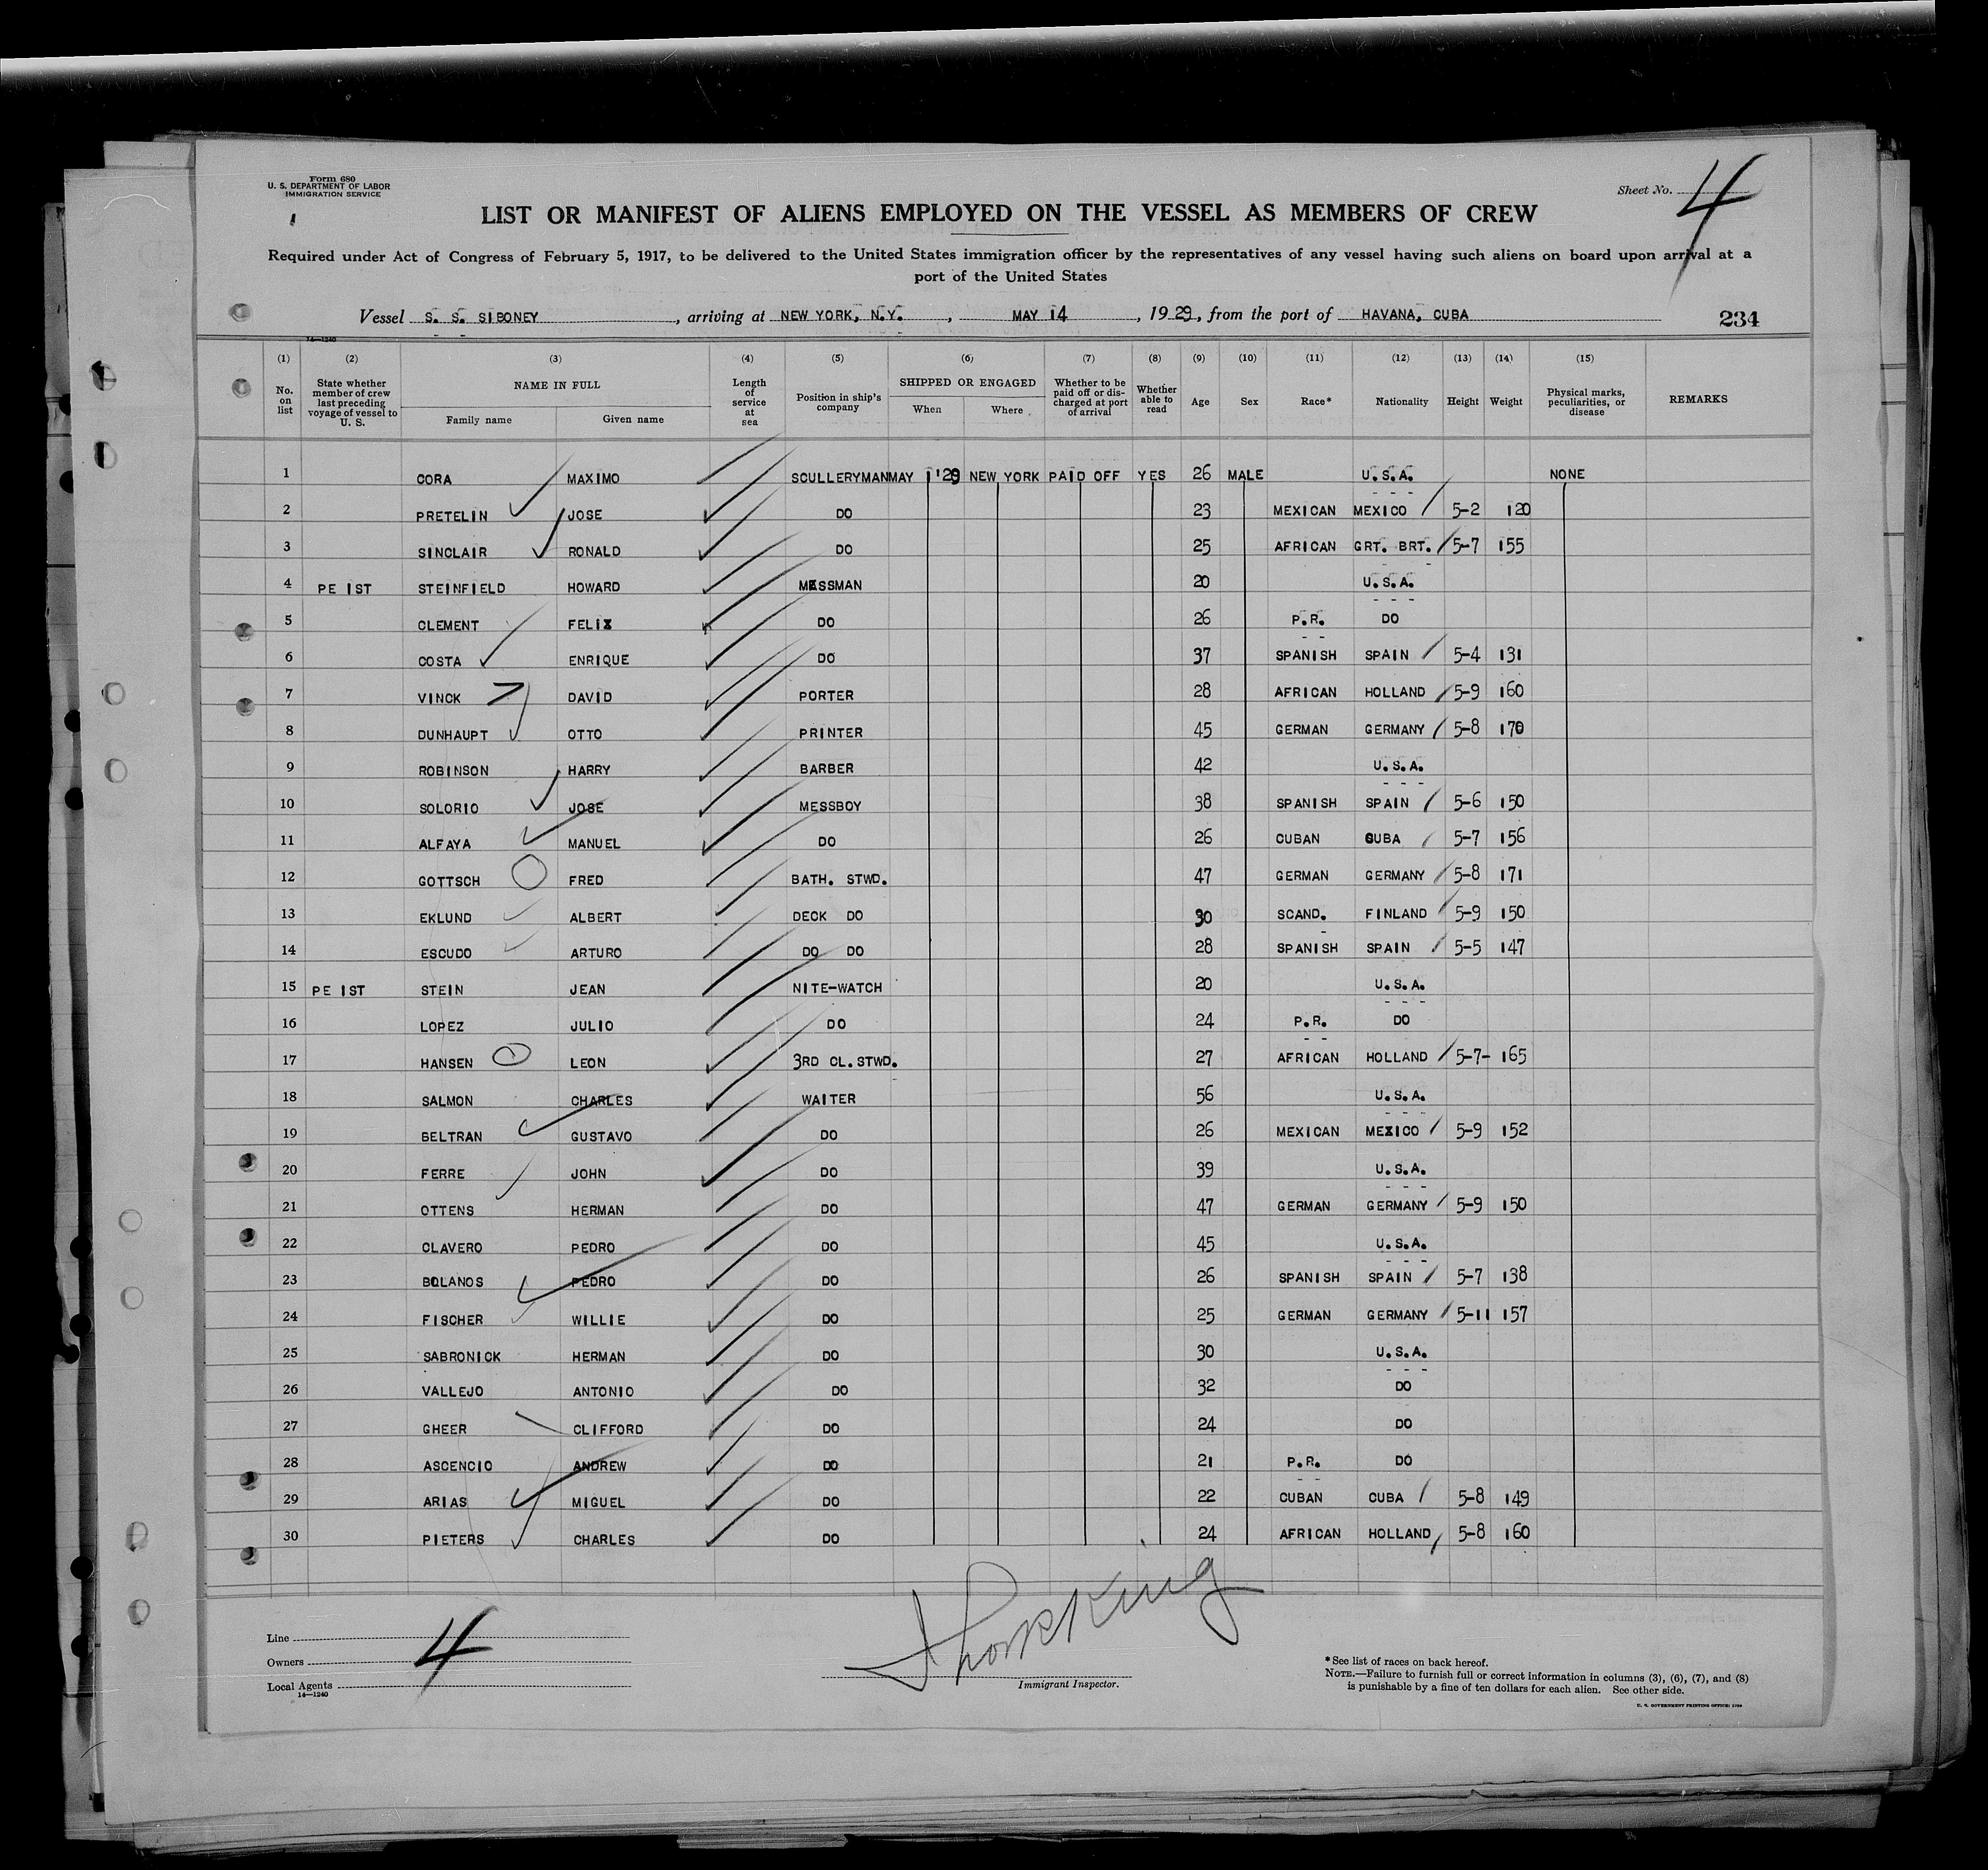 Form 680
U. S. DEPARTMENT OF LABOR
IMMIGRATION SERVICE
Sheet No. 4
LIST OR MANIFEST OF ALIENS EMPLOYED ON THE VESSEL AS MEMBERS OF CREW
Required under Act of Congress of February 5, 1917, to be delivered to the United States immigration officer by the representatives of any vessel having such aliens on board upon arrival at a
port of the United States
Vessel S. S. SIBONEY, arriving at NEW YORK, N.Y., MAY 14, 1929, from the port of HAVANA, CUBA
234
14—1240
(1) (2) (3) (4) (5) (6) (7) (8) (9) (10) (11) (12) (13) (14) (15)
No. on list State whether member of crew last preceding voyage of vessel to U. S. NAME IN FULL Family name Given name Length of service at sea Position in ship's company SHIPPED OR ENGAGED When Where Whether to be paid off or discharged at port of arrival Whether able to read Age Sex Race* Nationality Height Weight Physical marks, peculiarities, or disease REMARKS
1 CORA MAXIMO SCULLERYMAN MAY 1'29 NEW YORK PAID OFF YES 26 MALE U.S.A. NONE
2 PRETELIN JOSE DO 23 MEXICAN MEXICO 5-2 120
3 SINCLAIR RONALD DO 25 AFRICAN GRT. BRT. 5-7 155
4 PE IST STEINFIELD HOWARD MESSMAN 20 U.S.A.
5 CLEMENT FELIX DO 26 P.R. DO
6 COSTA ENRIQUE DO 37 SPANISH SPAIN 5-4 131
7 VINCK DAVID PORTER 28 AFRICAN HOLLAND 5-9 160
8 DUNHAUPT OTTO PRINTER 45 GERMAN GERMANY 5-8 170
9 ROBINSON HARRY BARBER 42 U.S.A.
10 SOLORIO JOSE MESSBOY 38 SPANISH SPAIN 5-6 150
11 ALFAYA MANUEL DO 26 CUBAN CUBA 5-7 156
12 GOTTSCH FRED BATH. STWD. 47 GERMAN GERMANY 5-8 171
13 EKLUND ALBERT DECK DO 30 SCAND. FINLAND 5-9 150
14 ESCUDO ARTURO DO DO 28 SPANISH SPAIN 5-5 147
15 PE IST STEIN JEAN NITE-WATCH 20 U.S.A.
16 LOPEZ JULIO DO 24 P.R. DO
17 HANSEN LEON 3RD CL.STWD. 27 AFRICAN HOLLAND 5-7- 165
18 SALMON CHARLES WAITER 56 U.S.A.
19 BELTRAN GUSTAVO DO 26 MEXICAN MEXICO 5-9 152
20 FERRE JOHN DO 39 U.S.A.
21 OTTENS HERMAN DO 47 GERMAN GERMANY 5-9 150
22 CLAVERO PEDRO DO 45 U.S.A.
23 BOLANOS PEDRO DO 26 SPANISH SPAIN 5-7 138
24 FISCHER WILLIE DO 25 GERMAN GERMANY 5-11 157
25 SABRONICK HERMAN DO 30 U.S.A.
26 VALLEJO ANTONIO DO 32 DO
27 GHEER CLIFFORD DO 24 DO
28 ASCENCIO ANDREW DO 21 P.R. DO
29 ARIAS MIGUEL DO 22 CUBAN CUBA 5-8 149
30 PIETERS CHARLES DO 24 AFRICAN HOLLAND 5-8 160
Line
Owners
Local Agents
14—1240
4
Immigrant Inspector.
*See list of races on back hereof.
NOTE.—Failure to furnish full or correct information in columns (3), (6), (7), and (8)
is punishable by a fine of ten dollars for each alien. See other side.